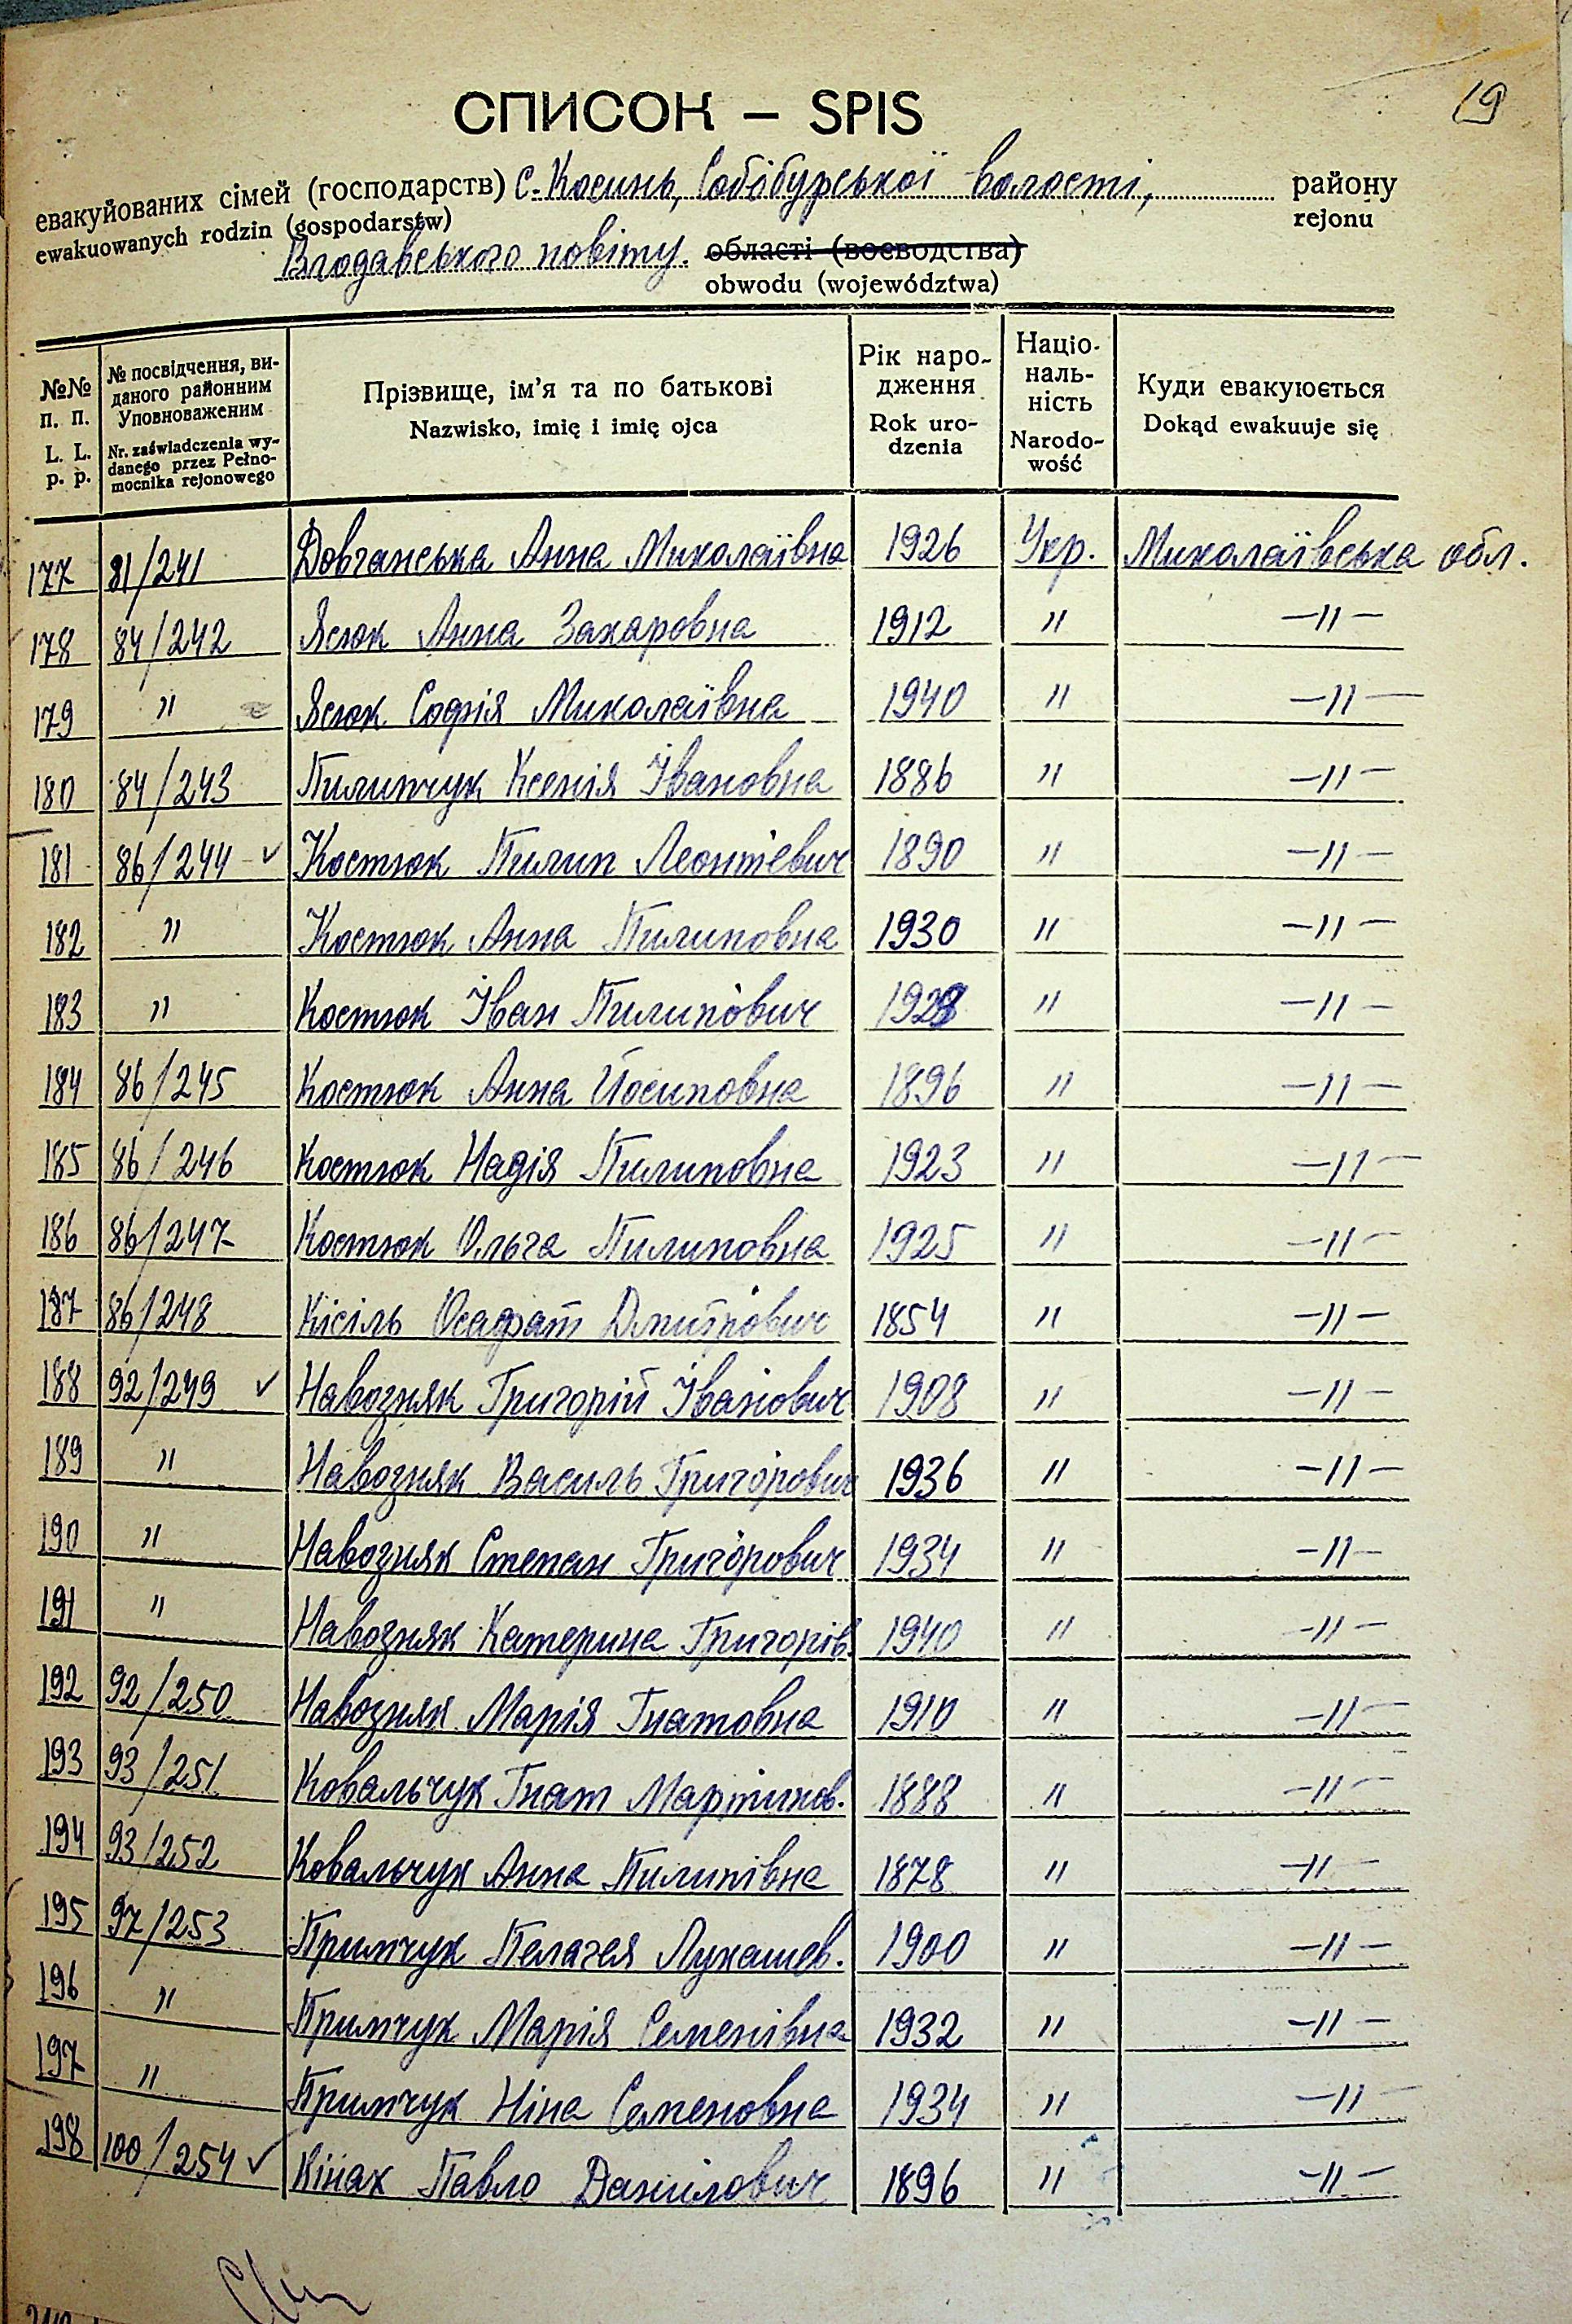 19
СПИСОК – SPIS
евакуйованих сімей (господарств) с. Косинь, Собібурської волости, району
ewakuowanych rodzin (gospodarstw) rejonu
Влодавського повіту. області (воєводства)
obwodu (województwa)
№№ п. п. L. L. p. p. № посвідчення, виданого районним Уповноваженим Nr. zaświadczenia wydanego przez Pełnomocnika rejonowego Прізвище, ім'я та по батькові Nazwisko, imię i imię ojca Рік народження Rok urodzenia Національність Narodowość Куди евакуюється Dokąd ewakuuje się
177 81/241 Довганська Анна Миколаївна 1926 Укр. Миколаївська обл.
178 84/242 Ясюк Анна Захаровна 1912 " —"—
179 " Ясюк Софія Миколаївна 1940 " —"—
180 84/243 Пилипчук Ксенія Івановна 1886 " —"—
181 86/244 ✓ Костюк Пилип Леонтієвич 1890 " —"—
182 " Костюк Анна Пилиповна 1930 " —"—
183 " Костюк Іван Пилипович 1928 " —"—
184 86/245 Костюк Анна Йосиповна 1896 " —"—
185 86/246 Костюк Надія Пилиповна 1923 " —"—
186 86/247 Костюк Ольга Пилиповна 1925 " —"—
187 86/248 Кісіль Осафат Дмитрович 1854 " —"—
188 92/249 ✓ Навозняк Григорій Іванович 1908 " —"—
189 " Навозняк Василь Григорович 1936 " —"—
190 " Навозняк Степан Григорович 1934 " —"—
191 " Навозняк Катерина Григорів. 1940 " —"—
192 92/250 Навозняк Марія Гнатовна 1910 " —"—
193 93/251 Ковальчук Гнат Мартинов. 1888 " —"—
194 93/252 Ковальчук Анна Пилипівна 1878 " —"—
195 97/253 Примчук Пелагея Лукашев. 1900 " —"—
196 " Примчук Марія Семенівна 1932 " —"—
197 " Примчук Ніна Семеновна 1934 " —"—
198 100/254 ✓ Кінах Павло Данилович 1896 " —"—